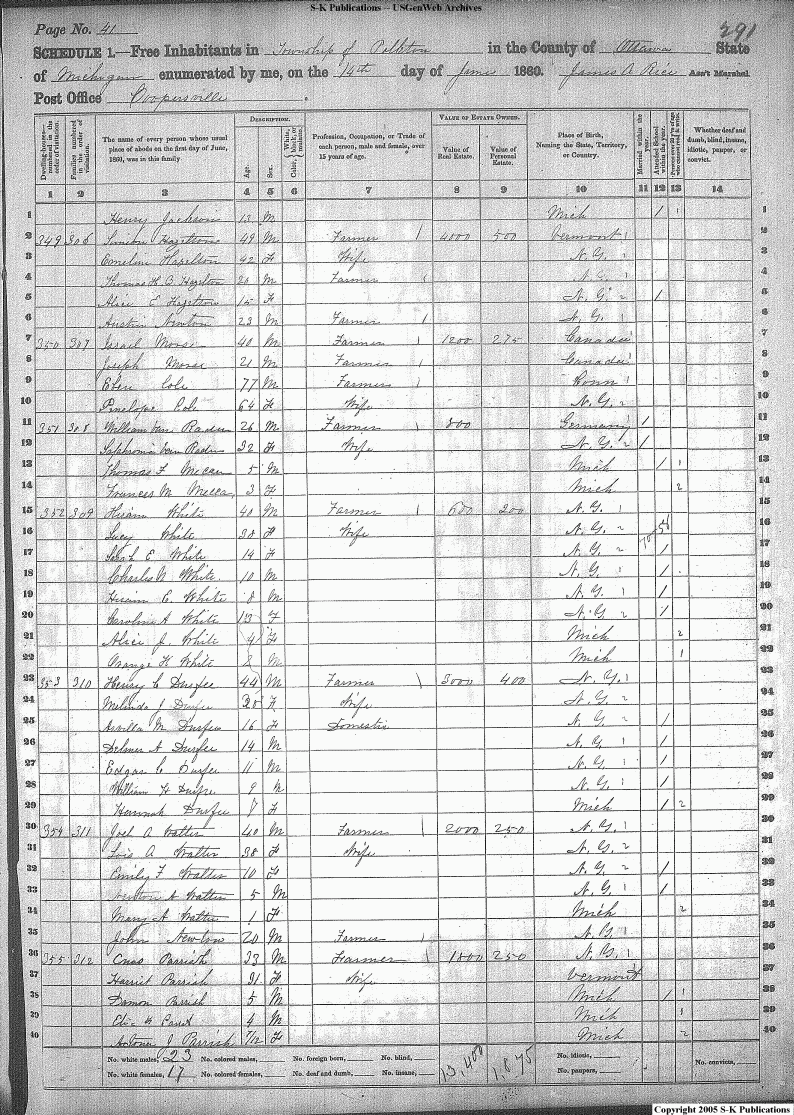 S-K Publications – USGenWeb Archives
Page No. 41
291
SCHEDULE 1.—Free Inhabitants in Township of Polkton in the County of Ottawa State
of Michigan enumerated by me, on the 14th day of June 1860. James A Rice Ass't Marshal
Post Office Coopersville.
DESCRIPTION. VALUE OF ESTATE OWNED.
Dwelling-houses—numbered in the order of visitation.
Families numbered in the order of visitation.
The name of every person whose usual place of abode on the first day of June, 1860, was in this family
Age
Sex
Color, White, black, or mulatto.
Profession, Occupation, or Trade of each person, male and female, over 15 years of age.
Value of Real Estate.
Value of Personal Estate.
Place of Birth, Naming the State, Territory, or Country.
Married within the year.
Attended School within the year.
Whether deaf and dumb, blind, insane, idiotic, pauper, or convict.
1 2 3 4 5 6 7 8 9 10 11 12 13 14
1 Henry Jackson 13 M Mich / 1 1
2 349 306 Simeon Hazelton 49 M Farmer 1 4000 500 Vermont 1 2
3 Emeline Hazelton 42 F Wife N.Y. 2 3
4 Thomas H C Hazelton M Farmer N.Y. 1 4
5 Alice E Hazelton 15 F N.Y. 2 / 5
6 Austin Newton 23 M Farmer 1 N.Y. 1 6
7 350 307 Israel Morse 40 M Farmer 1 1200 275 Canada 1 7
8 Joseph Morse 21 M Farmer 1 Canada 1 8
9 Eben Cole 77 M Farmer 1 Conn 1 9
10 Penelope Cole 64 F Wife N.Y. 2 10
11 351 308 William Van Raden 26 M Farmer 1 800 Germany 1 / 11
12 Van Raden 32 F Wife N.Y. 2 / 12
13 Thomas F 5 M Mich / 1 13
14 Frances M 3 F Mich 2 14
15 352 309 Hiram White 40 M Farmer 1 600 200 N.Y. 1 15
16 Lucy White 38 F Wife N.Y. 2 16
17 Sarah E White 14 F N.Y. 2 / 17
18 Charles N White 10 M N.Y. 1 / 18
19 Hiram E White 8 M N.Y. 1 / 19
20 Caroline A White 13 F N.Y. 2 / 20
21 Alice J White 4 F Mich 2 21
22 Orange H White M Mich 1 22
23 353 310 Henry C Durfee 44 M Farmer 1 3000 400 N.Y. 1 23
24 Melinda J Durfee F Wife N.Y. 2 24
25 Arvilla M Durfee 16 F Domestic N.Y. 2 / 25
26 Delmer A Durfee 14 M N.Y. 1 / 26
27 Edgar C Durfee 11 M N.Y. 1 / 27
28 William H Durfee 9 M N.Y. 1 / 28
29 Hannah Durfee 7 F Mich / 2 29
30 354 311 Joel A Walter 40 M Farmer 1 2000 250 N.Y. 1 30
31 Lois A Walter 38 F Wife N.Y. 2 31
32 Emily F Walter 10 F N.Y. 2 / 32
33 Newton A Walter 5 M N.Y. 1 / 33
34 Mary A Walter 1 F Mich 2 34
35 John Newton 20 M Farmer 1 N.Y. 1 35
36 355 312 Parrish 33 M Farmer 1 250 N.Y. 1 36
37 Harriet Parrish 31 F Wife Vermont 37
38 Damon Parrish 5 M Mich / 1 38
39 4 M Mich 1 39
40 J Parrish 7/12 F Mich 2 40
No. white males, 23 No. colored males, No. foreign born, No. blind, 13,400 1,875 No. idiotic,
No. white females, 17 No. colored females, No. deaf and dumb, No. insane, No. paupers, No. convicts,
Copyright 2005 S-K Publications